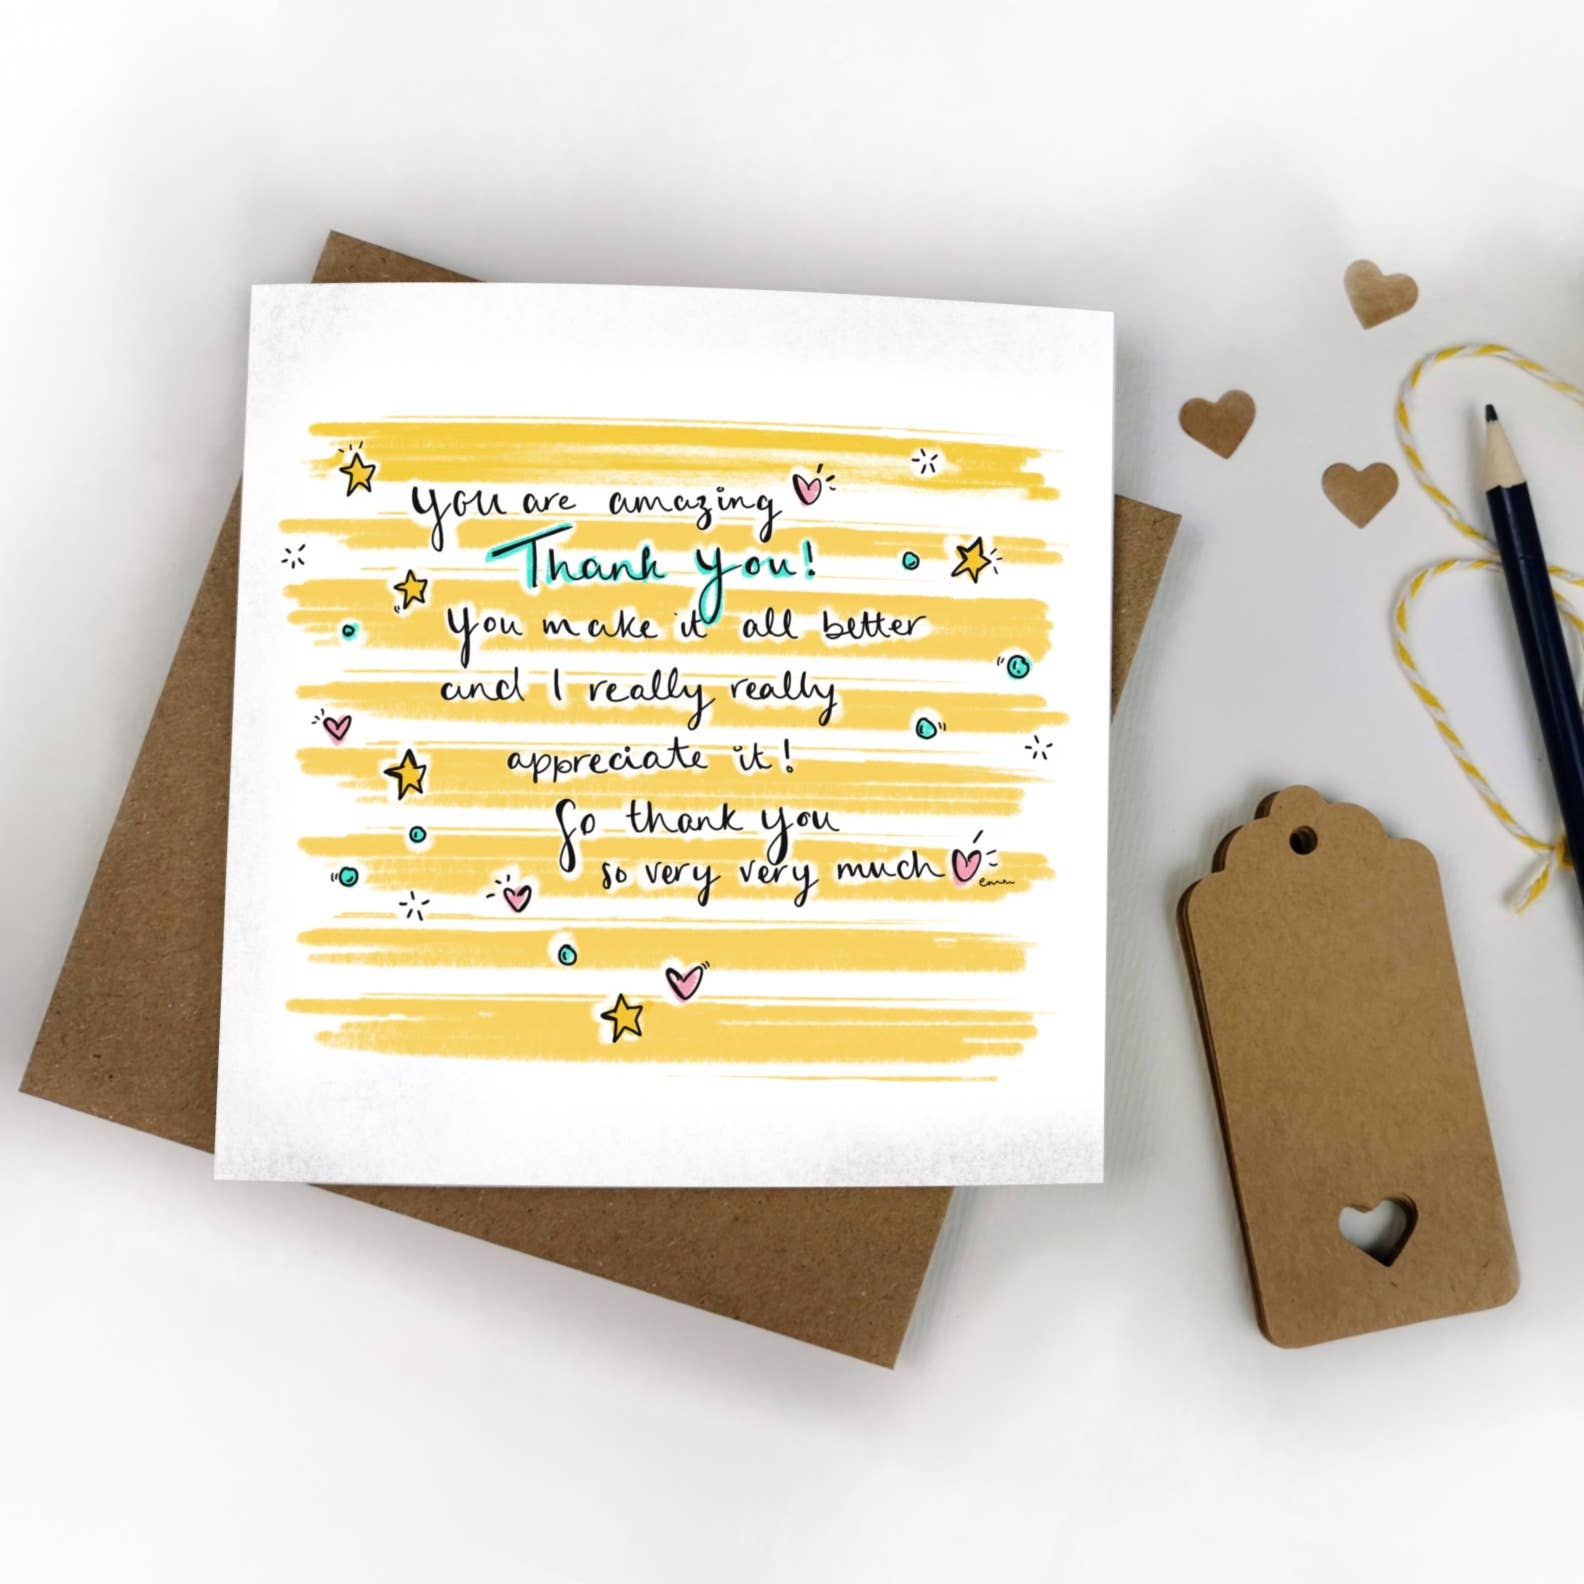 You are amazing
Thank you!
You make it all better
and I really really
appreciate it!
So thank you
so very very much